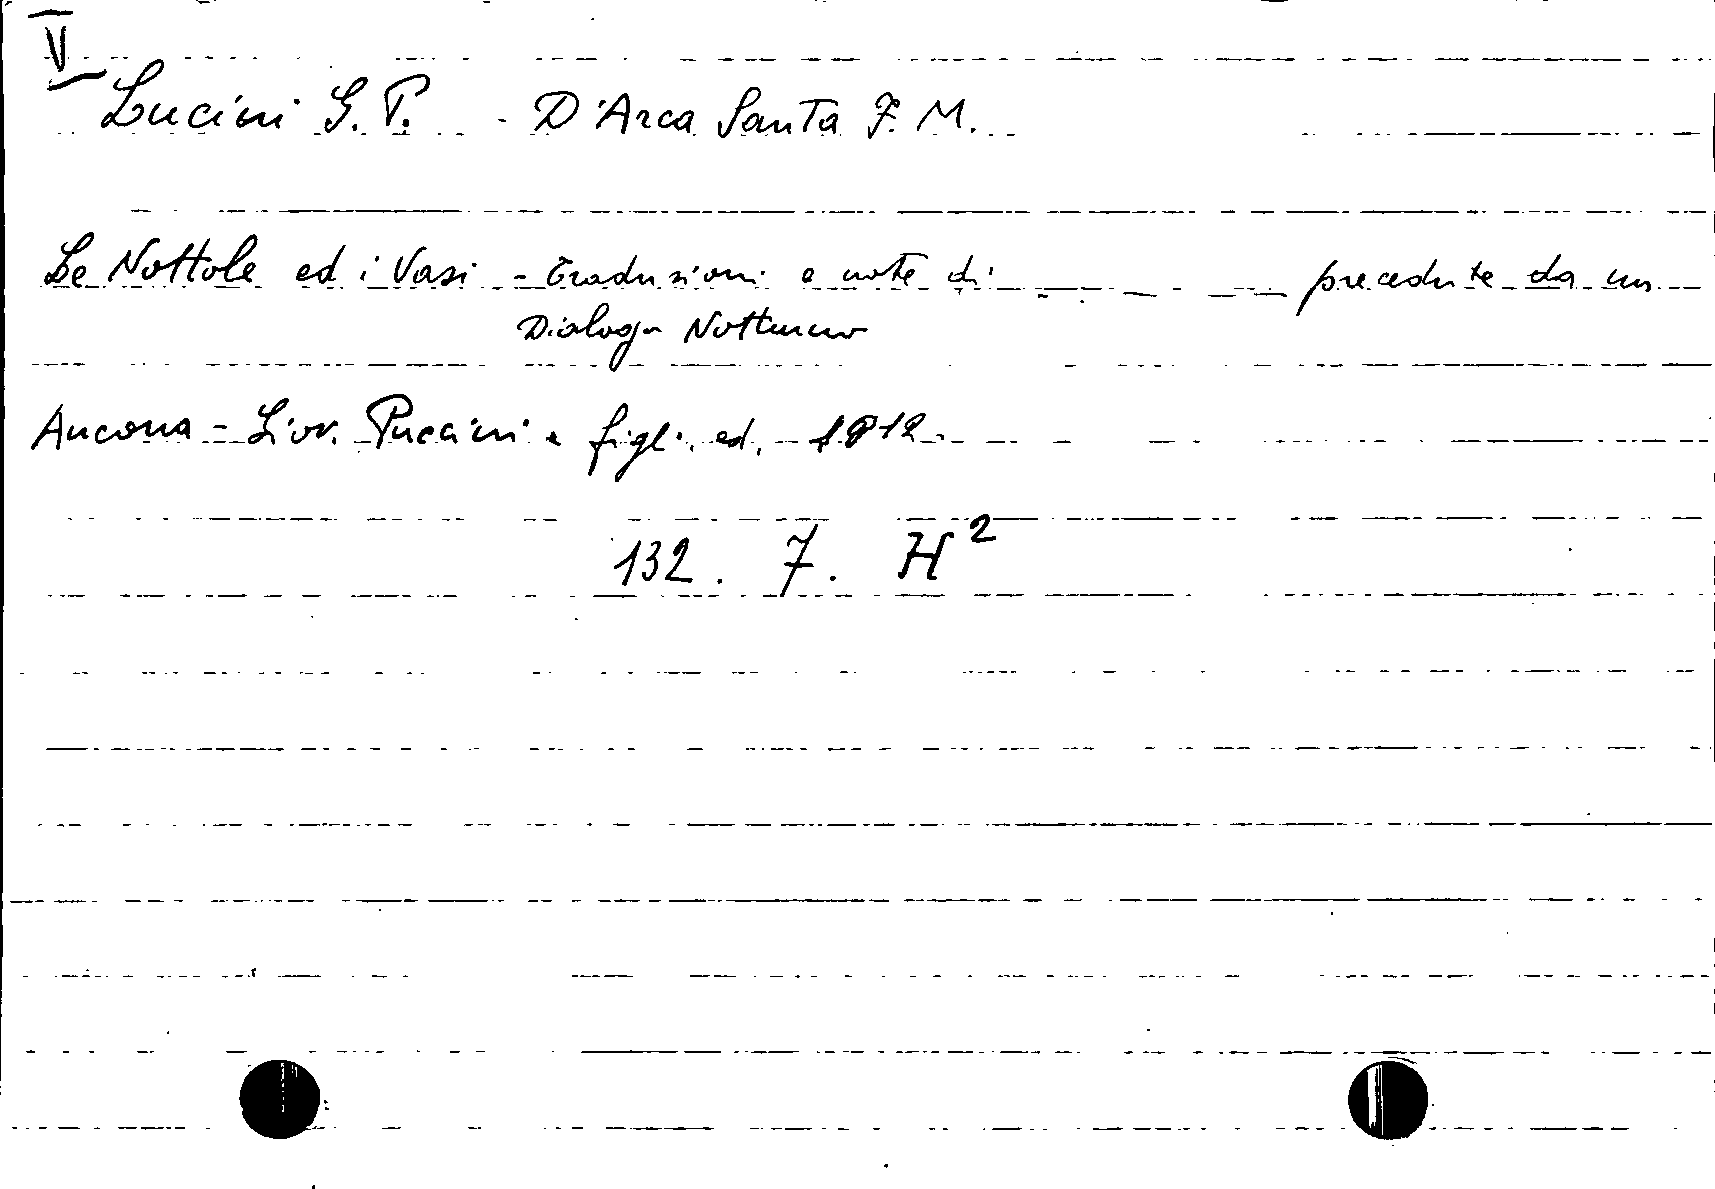 V
Lucini G. P. - D'Arca Santa F. M.
Le Nottole ed i Vasi - Traduzioni e note di _ _ _ _ precedute da un
Dialogo Notturno
Ancona - Giov. Puccini e figli. ed. 1912.
132. 7. H²